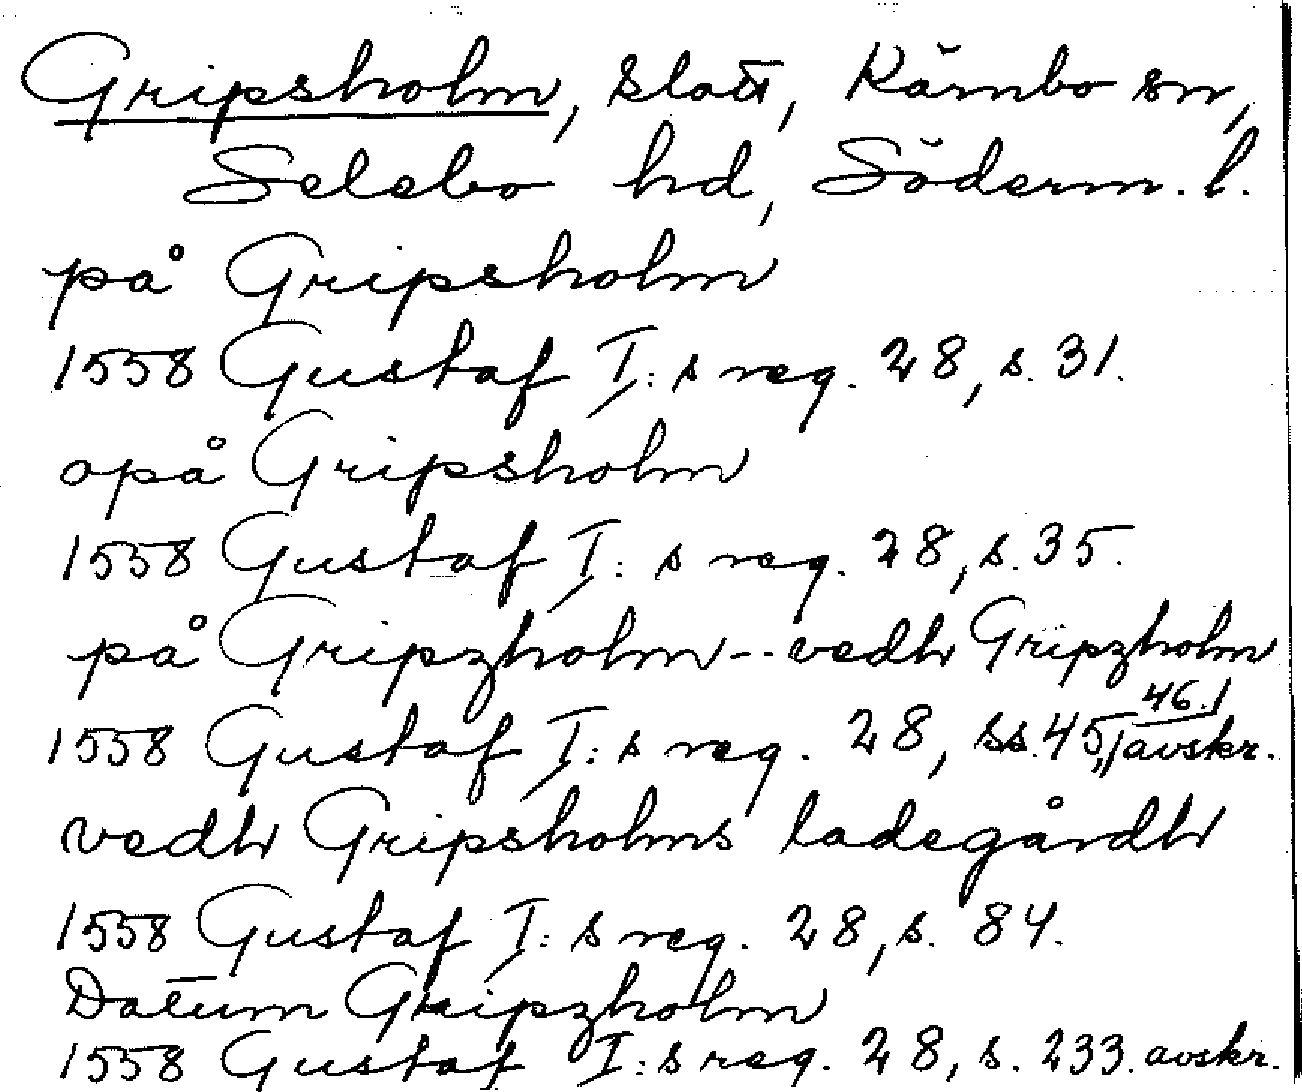 Gripsholm, slott, Kärnbo sn,
Selebo hd, Söderm. l.
på Gripsholm
1558 Gustaf I:s reg. 28, s. 31.
opå Gripsholm
1558 Gustaf I:s reg. 28, s. 35.
på Gripzholm -- vedh Gripzholm
1558 Gustaf I:s reg. 28, ss. 45, 46. avskr.
vedh Gripsholms ladegårdh
1558 Gustaf I:s reg. 28, s. 84.
Datum Gripzholm
1558 Gustaf I:s reg. 28, s. 233. avskr.